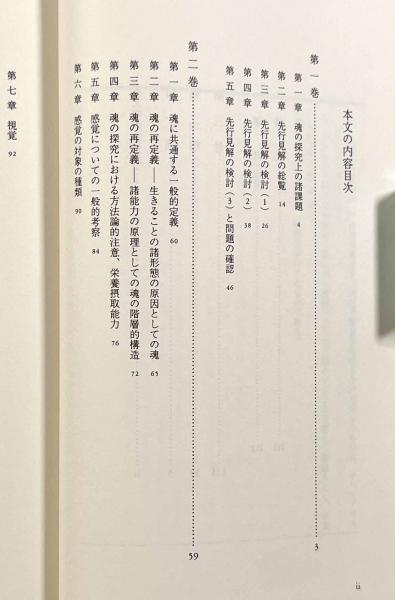 本文の内容目次
第一巻……………………3
第一章 魂の探究上の諸課題 4
第二章 先行見解の総覧 14
第三章 先行見解の検討（1） 26
第四章 先行見解の検討（2） 38
第五章 先行見解の検討（3）と問題の確認 46
第二巻……………………59
第一章 魂に共通する一般的定義 60
第二章 魂の再定義——生きることの諸形態の原因としての魂 65
第三章 魂の再定義——諸能力の原理としての魂の階層的構造 72
第四章 魂の探究における方法論的注意、栄養摂取能力 76
第五章 感覚についての一般的考察 84
第六章 感覚の対象の種類 90
第七章 視覚 92
ii